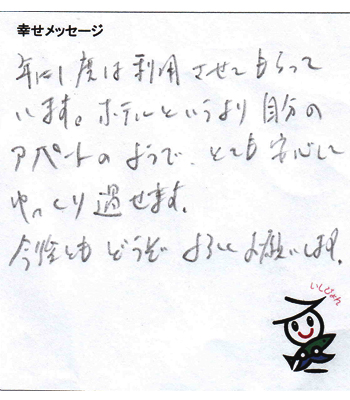 幸せメッセージ
年に1度は利用させてもらって
います。ホテルというより自分の
アパートのようで、とても安心して
ゆっくり過せます。
今後ともどうぞよろしくお願いします。
いしぴょん